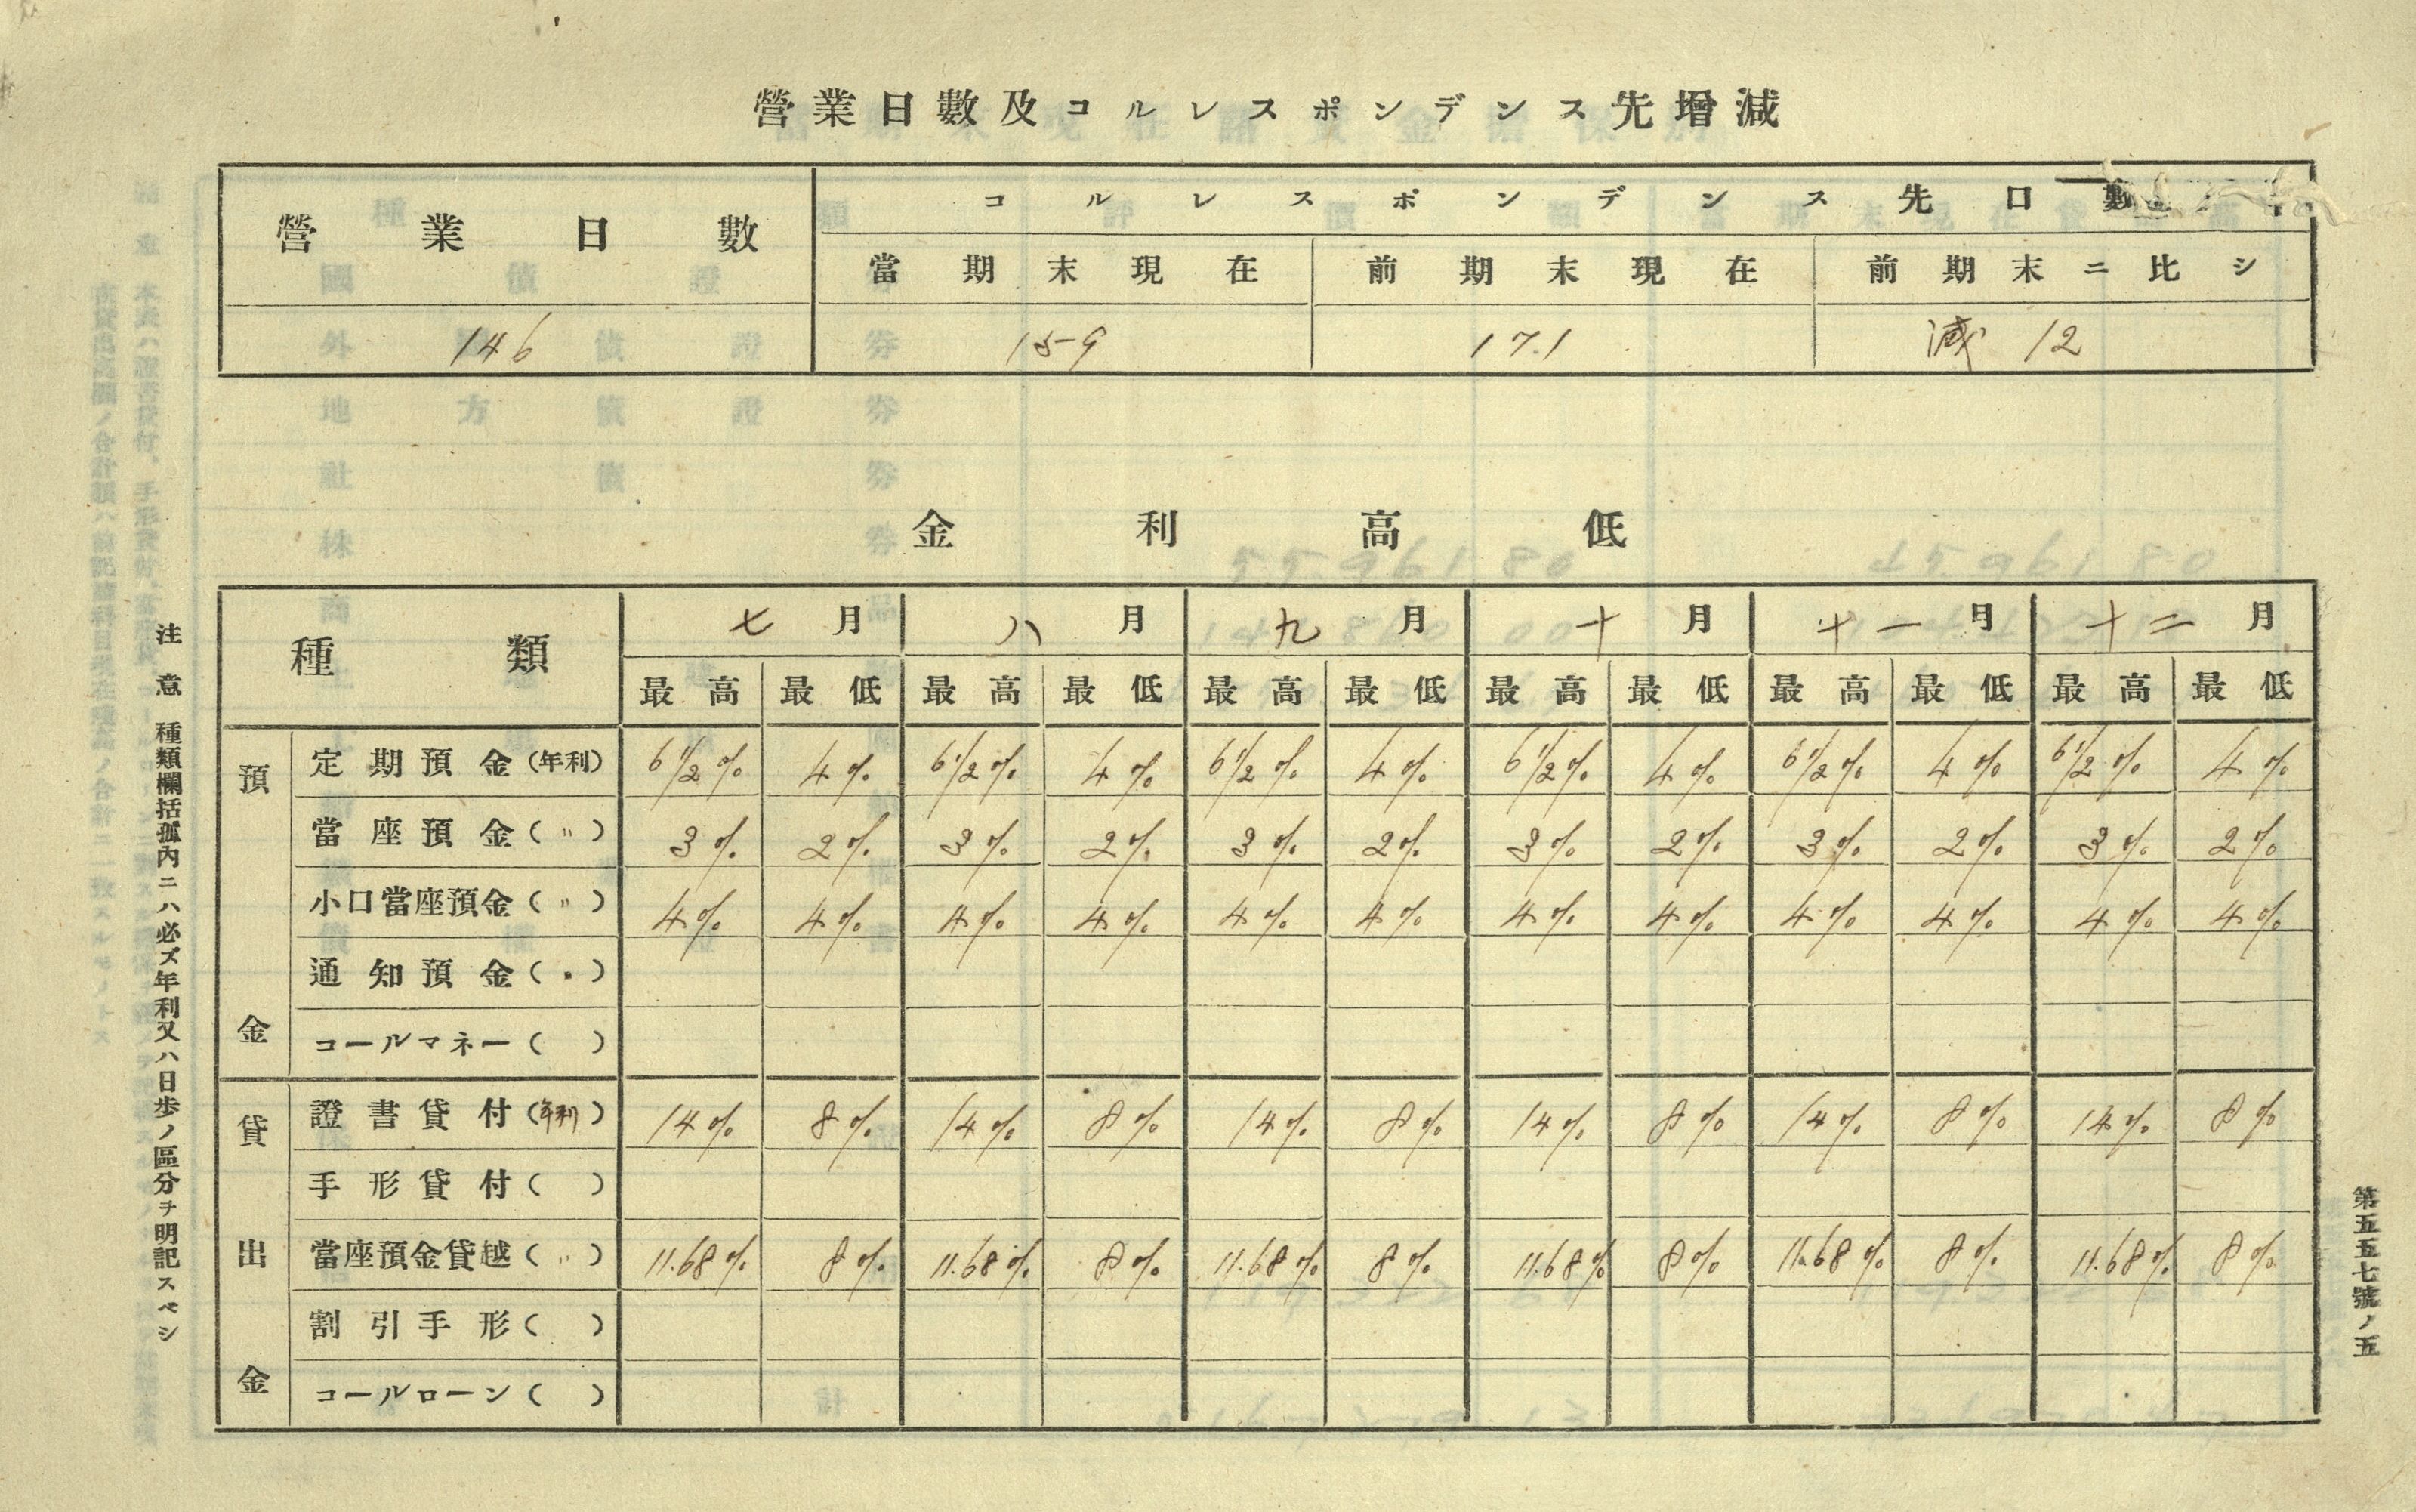 營業日數及コルレスポンデンス先增減
營業日數 コルレスポンデンス先口數
當期末現在 前期末現在 前期末ニ比シ
146 159 171 減 12
金利高低
種類 七月 八月 九月 十月 十一月 十二月
最高 最低 最高 最低 最高 最低 最高 最低 最高 最低 最高 最低
預金
定期預金(年利) 6 1/2% 4% 6 1/2% 4% 6 1/2% 4% 6 1/2% 4% 6 1/2% 4% 6 1/2% 4%
當座預金(〃) 3% 2% 3% 2% 3% 2% 3% 2% 3% 2% 3% 2%
小口當座預金(〃) 4% 4% 4% 4% 4% 4% 4% 4% 4% 4% 4% 4%
通知預金(〃)
コールマネー( )
貸出金
證書貸付(年利) 14% 8% 14% 8% 14% 8% 14% 8% 14% 8% 14% 8%
手形貸付( )
當座預金貸越(〃) 11.68% 8% 11.68% 8% 11.68% 8% 11.68% 8% 11.68% 8% 11.68% 8%
割引手形( )
コールローン( )
注意 種類欄括孤內ニハ必ズ年利又ハ日步ノ區分ヲ明記スベシ
第五五七號ノ五